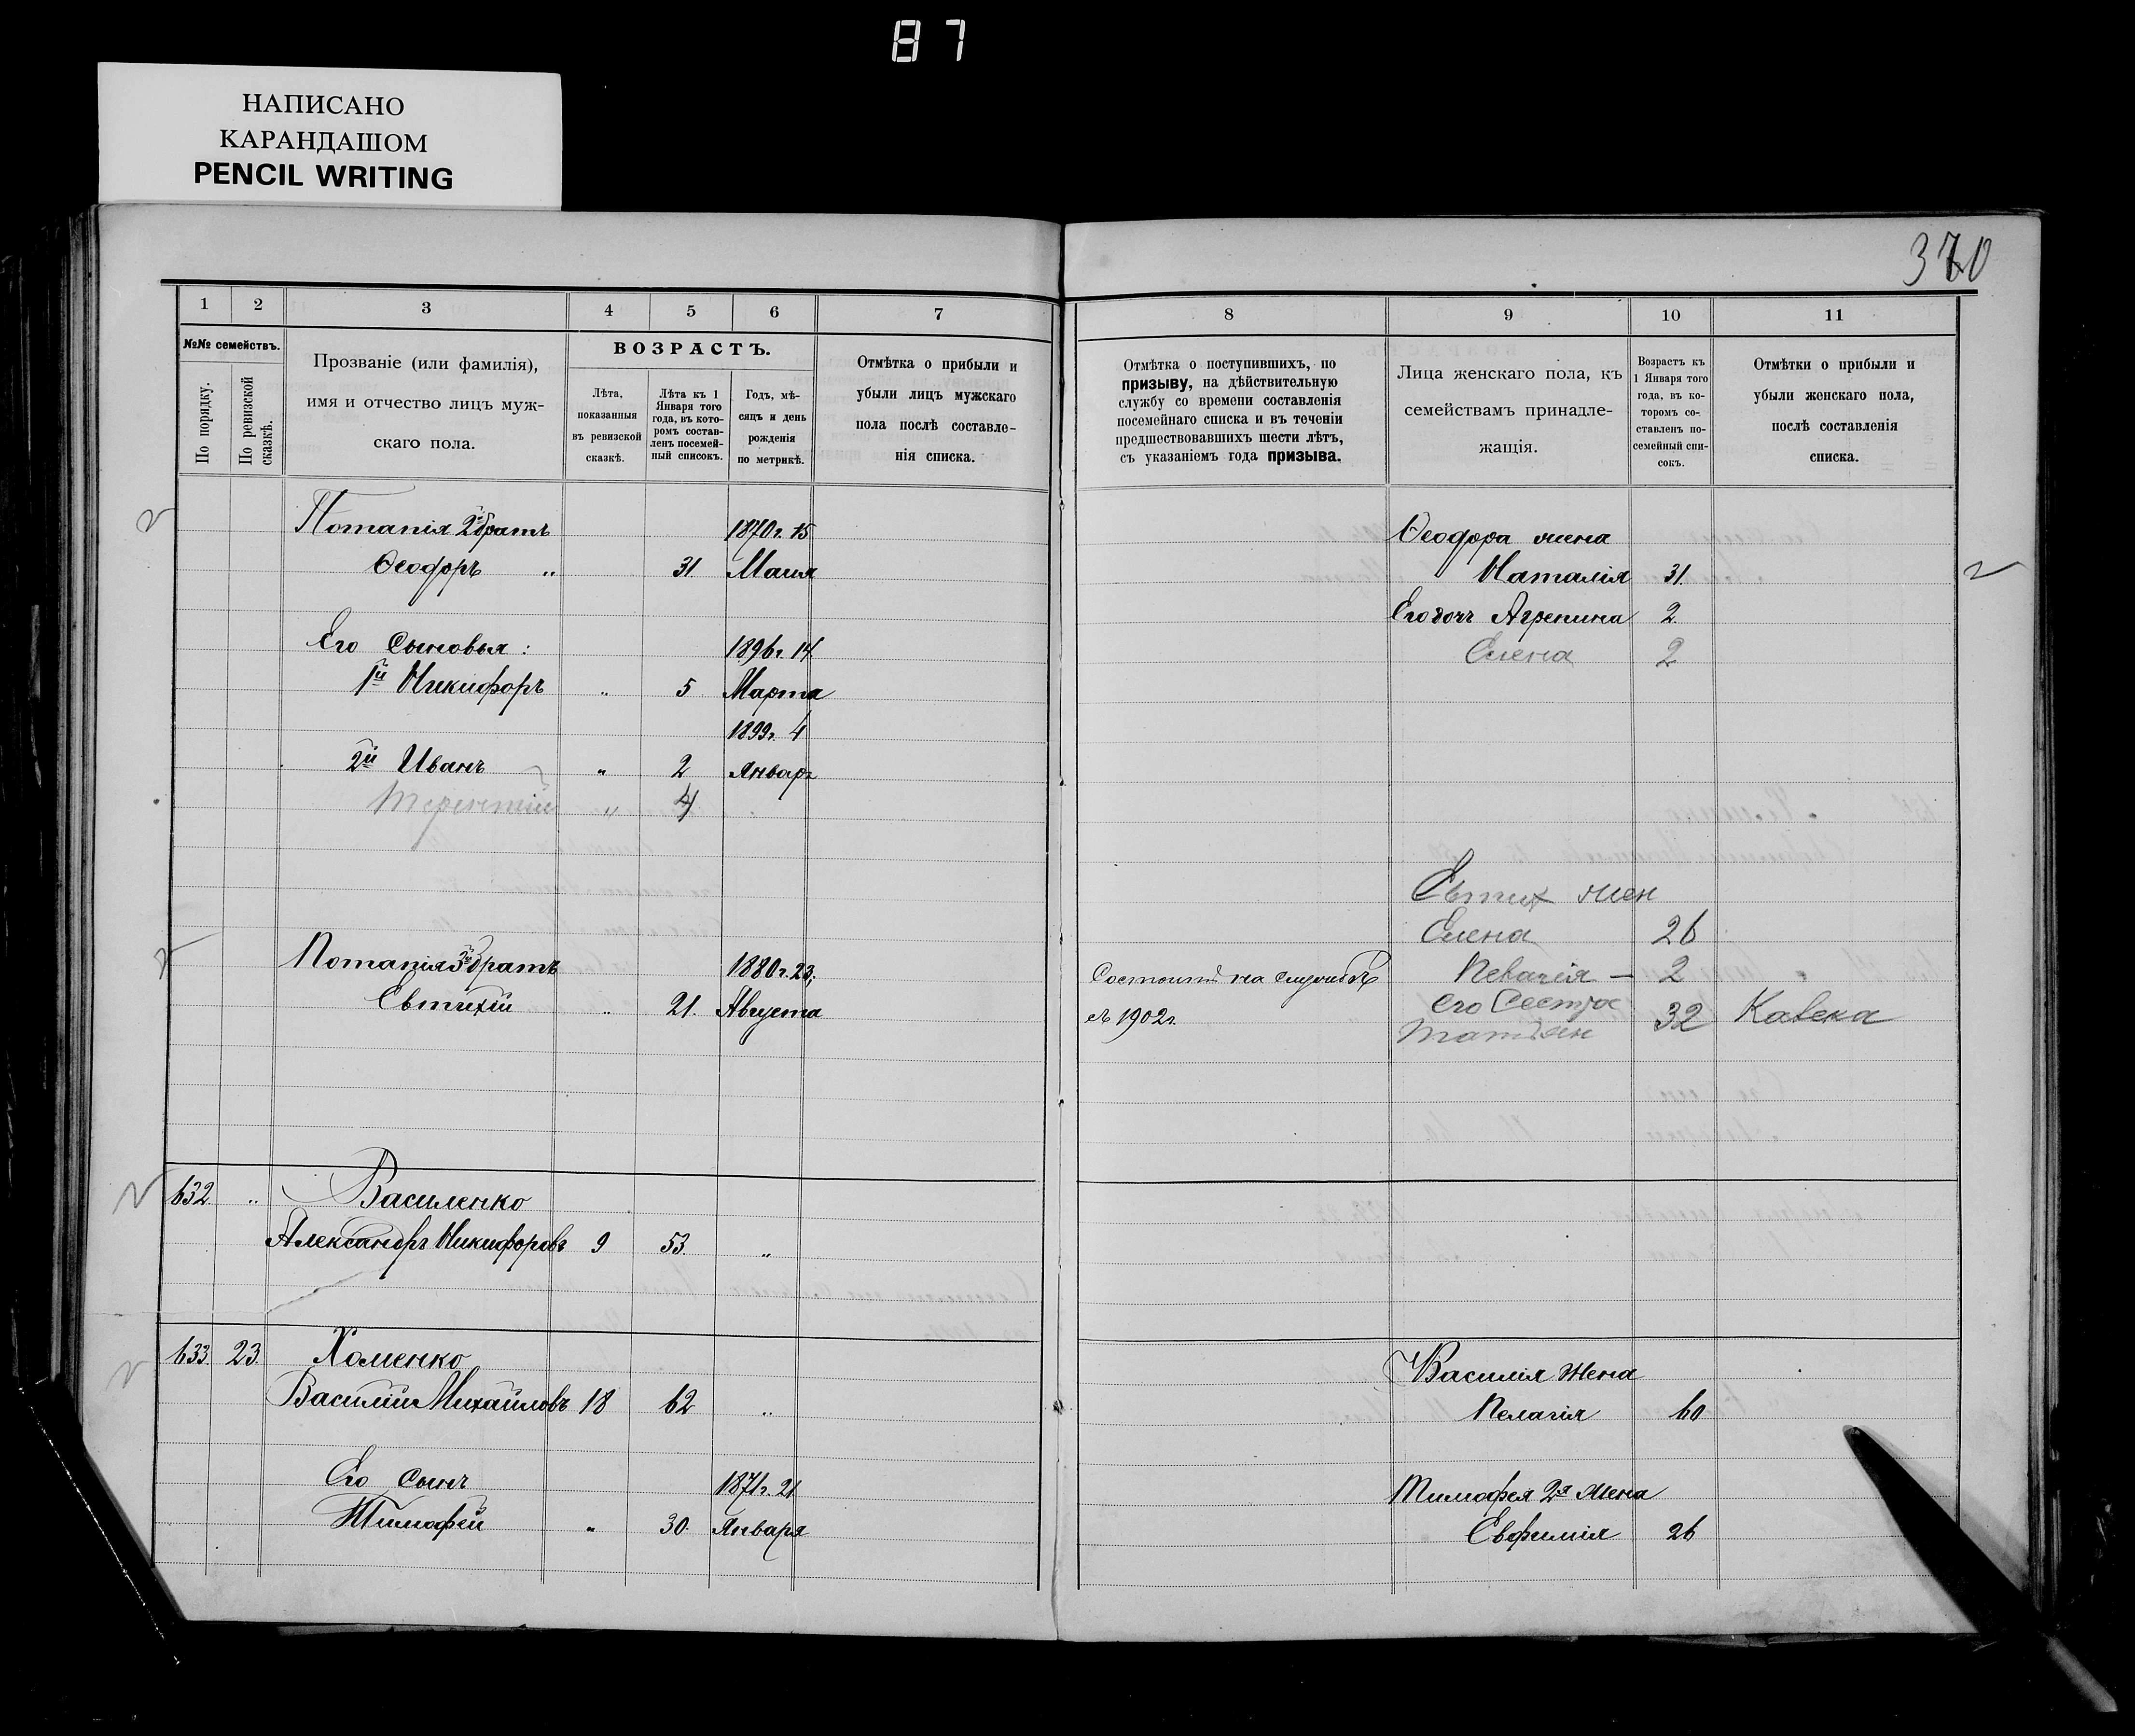 87
НАПИСАНО
КАРАНДАШОМ
PENCIL WRITING
370
1 2 3 4 5 6 7
№№ семействъ.
По порядку.
По ревизской сказкѣ.
Прозваніе (или фамилія),
имя и отчество лицъ муж-
скаго пола.
ВОЗРАСТЪ.
Лѣта,
показанныя
въ ревизской
сказкѣ.
Лѣта къ 1
Января того
года, въ кото-
ромъ состав-
ленъ посемей-
ный списокъ.
Годъ, мѣ-
сяцъ и день
рожденія
по метрикѣ.
Отмѣтка о прибыли и
убыли лицъ мужскаго
пола послѣ составле-
нія списка.
Потапія 2й братъ 1870г. 15
Ѳеодоръ „ 31. Маия
Его Сыновья: 1896г. 14
1й Никифоръ „ 5 Марта
1899г. 4
2й Иванъ „ 2 Январ
Терентій „ 4
Потапія 3й братъ 1880г. 23,
Евтихій „ 21. Августа
632. „ Василенко
Александръ Никифоровъ 9 53. „
633. 23. Хоменко
Василій Михайловъ 18 62 „
Его сынъ 1871г. 21
Тимофей „ 30. Января
8 9 10 11
Отмѣтка о поступившихъ, по
призыву, на дѣйствительную
службу со времени составленія
посемейнаго списка и въ теченіи
предшествовавшихъ шести лѣтъ,
съ указаніемъ года призыва.
Лица женскаго пола, къ
семействамъ принадле-
жащія.
Возрастъ къ
1 Января того
года, въ ко-
торомъ со-
ставленъ по-
семейный спи-
сокъ.
Отмѣтки о прибыли и
убыли женскаго пола,
послѣ составленія
списка.
Ѳеодора жена
Наталія 31.
Его дочь Агрепина 2.
Елена 2
Евтих жен
Елена 26
Состоитъ на службѣ Пелагія — 2
съ 1902г. его Сестра
Татьян 32
Василія жена
Пелагія 60
Тимофея 2я жена
Евфимія 26